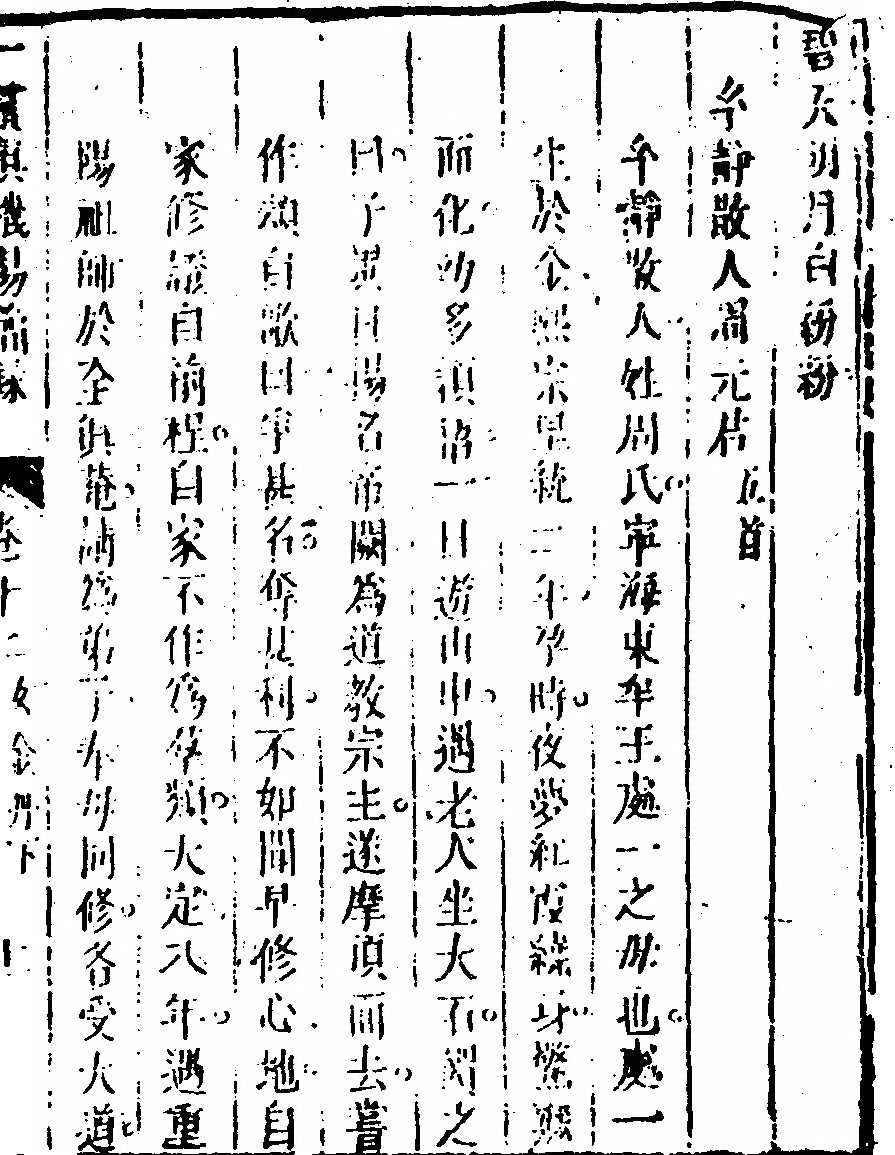 碧天明月白紛紛
玄靜散人周元君 五首
玄靜散人姓周氏寧海東牟王處一之母也處一
生於金熙宗皇統二年孕時夜夢紅霞繞身驚寤
而化幼多 一日遊山中遇老人坐大石 之
曰子異日揚名帝闕為道教宗主遂摩頂而去嘗
作頌自歌曰爭甚名奪甚利不如聞早修心地自
家修證自前程自家不作為羣類大定八年遇重
陽祖師於全真菴請為弟子奉母同修各受大道
一貫真機易簡錄 卷十二 女金丹下